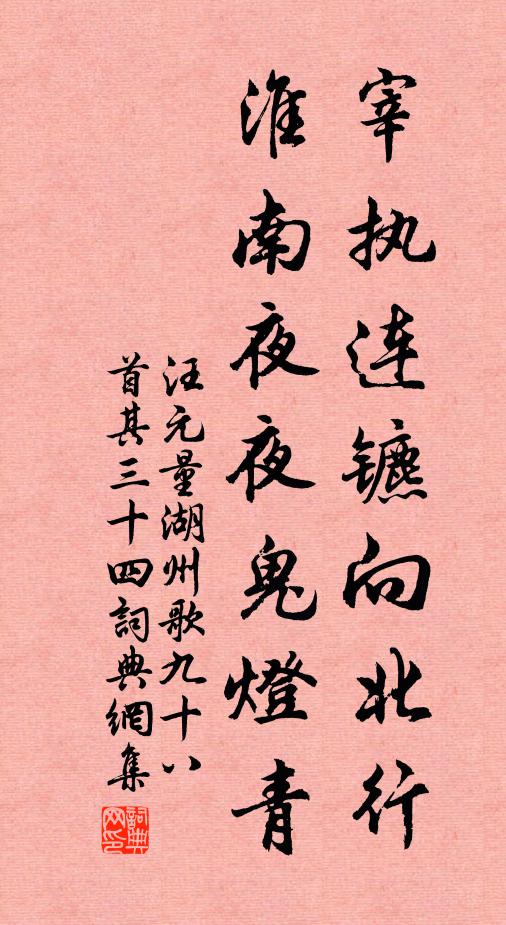 宰执连镳向北行
淮南夜夜鬼燈青
汪元量湖州歌九十八
首其三十四詞典網集
詞典
网印